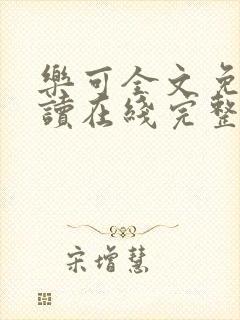 樂可全文免
讀在綫完整
宋增慧